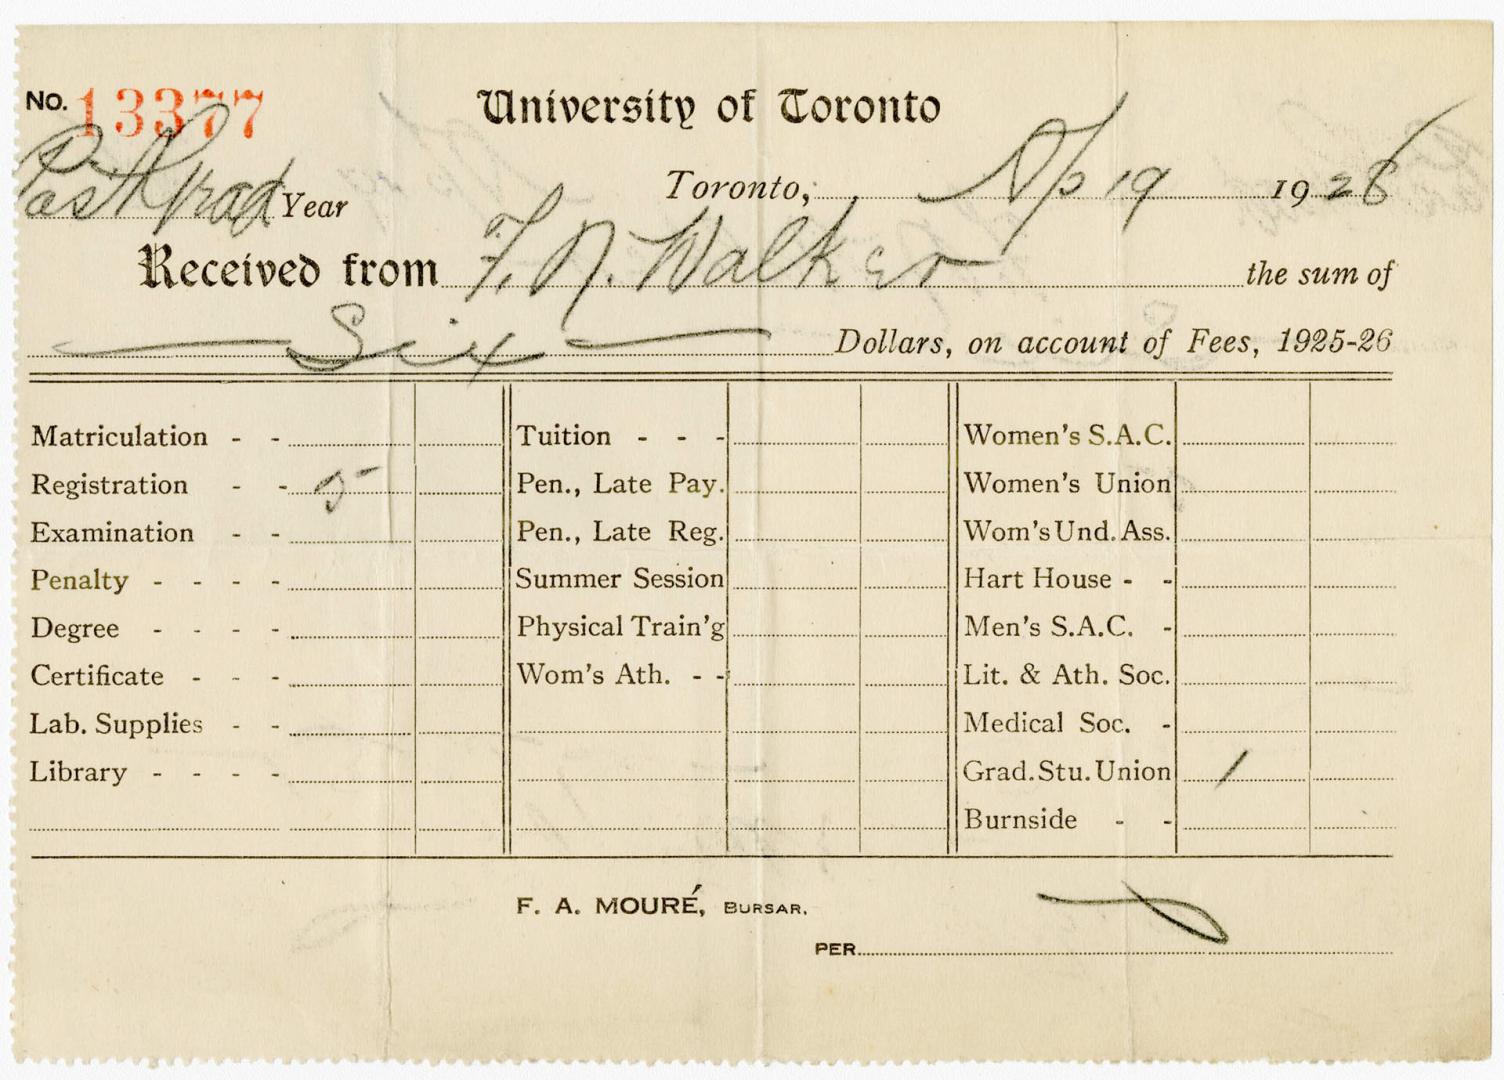 No. 13377
University of Toronto
Post Grad Year
Toronto, Ap 19 1926
Received from F. N. Walker the sum of
Six Dollars, on account of Fees, 1925-26
Matriculation - - Tuition - - - Women's S.A.C.
Registration - - 5- Pen., Late Pay. Women's Union
Examination - - Pen., Late Reg. Wom's Und. Ass.
Penalty - - - - Summer Session Hart House - -
Degree - - - - Physical Train'g Men's S.A.C. -
Certificate - - - Wom's Ath. - - Lit. & Ath. Soc.
Lab. Supplies - - Medical Soc. -
Library - - - - Grad. Stu. Union 1
Burnside - -
F. A. MOURÉ, BURSAR.
PER